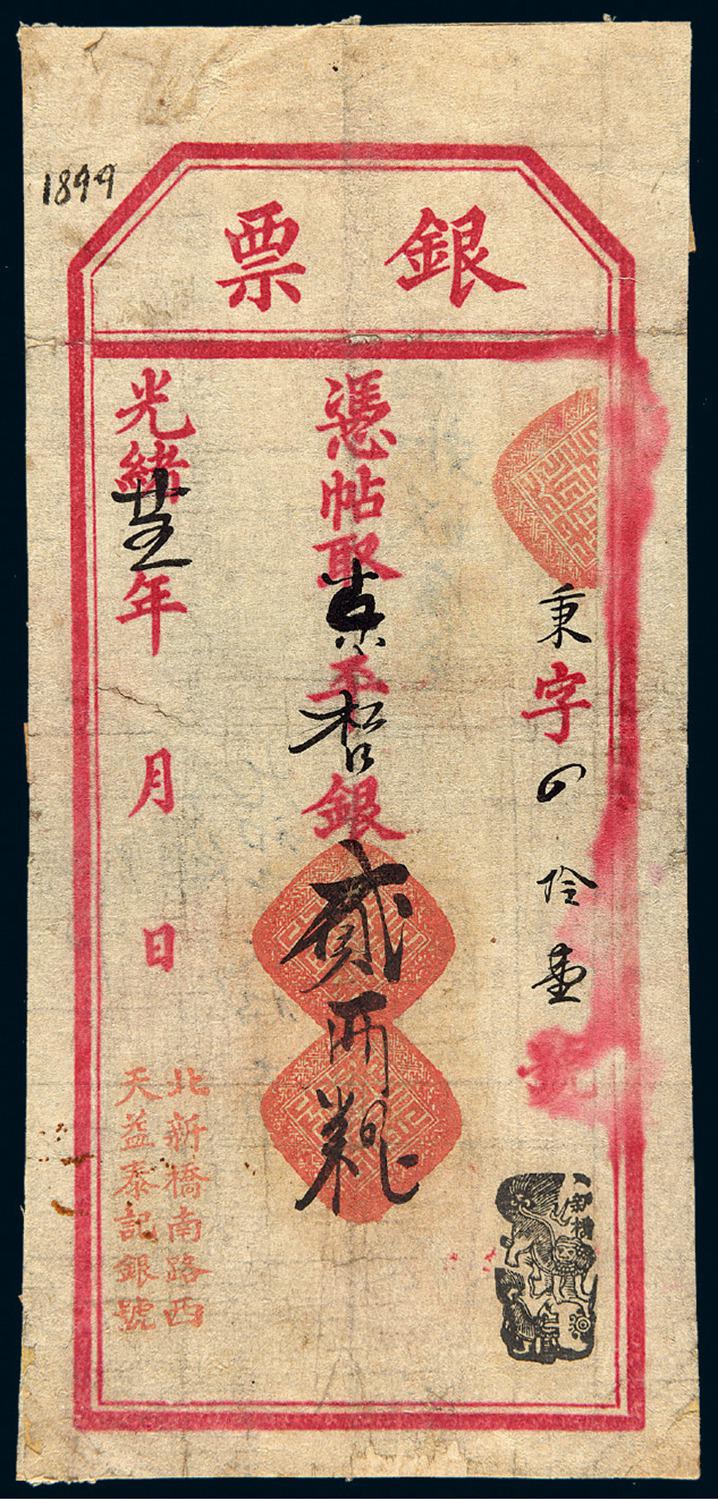 1899
銀票
秉字四拾壹號
憑帖取京平松銀貳兩整
光緒廿五年 月 日
北新橋南路西
天益泰記銀號